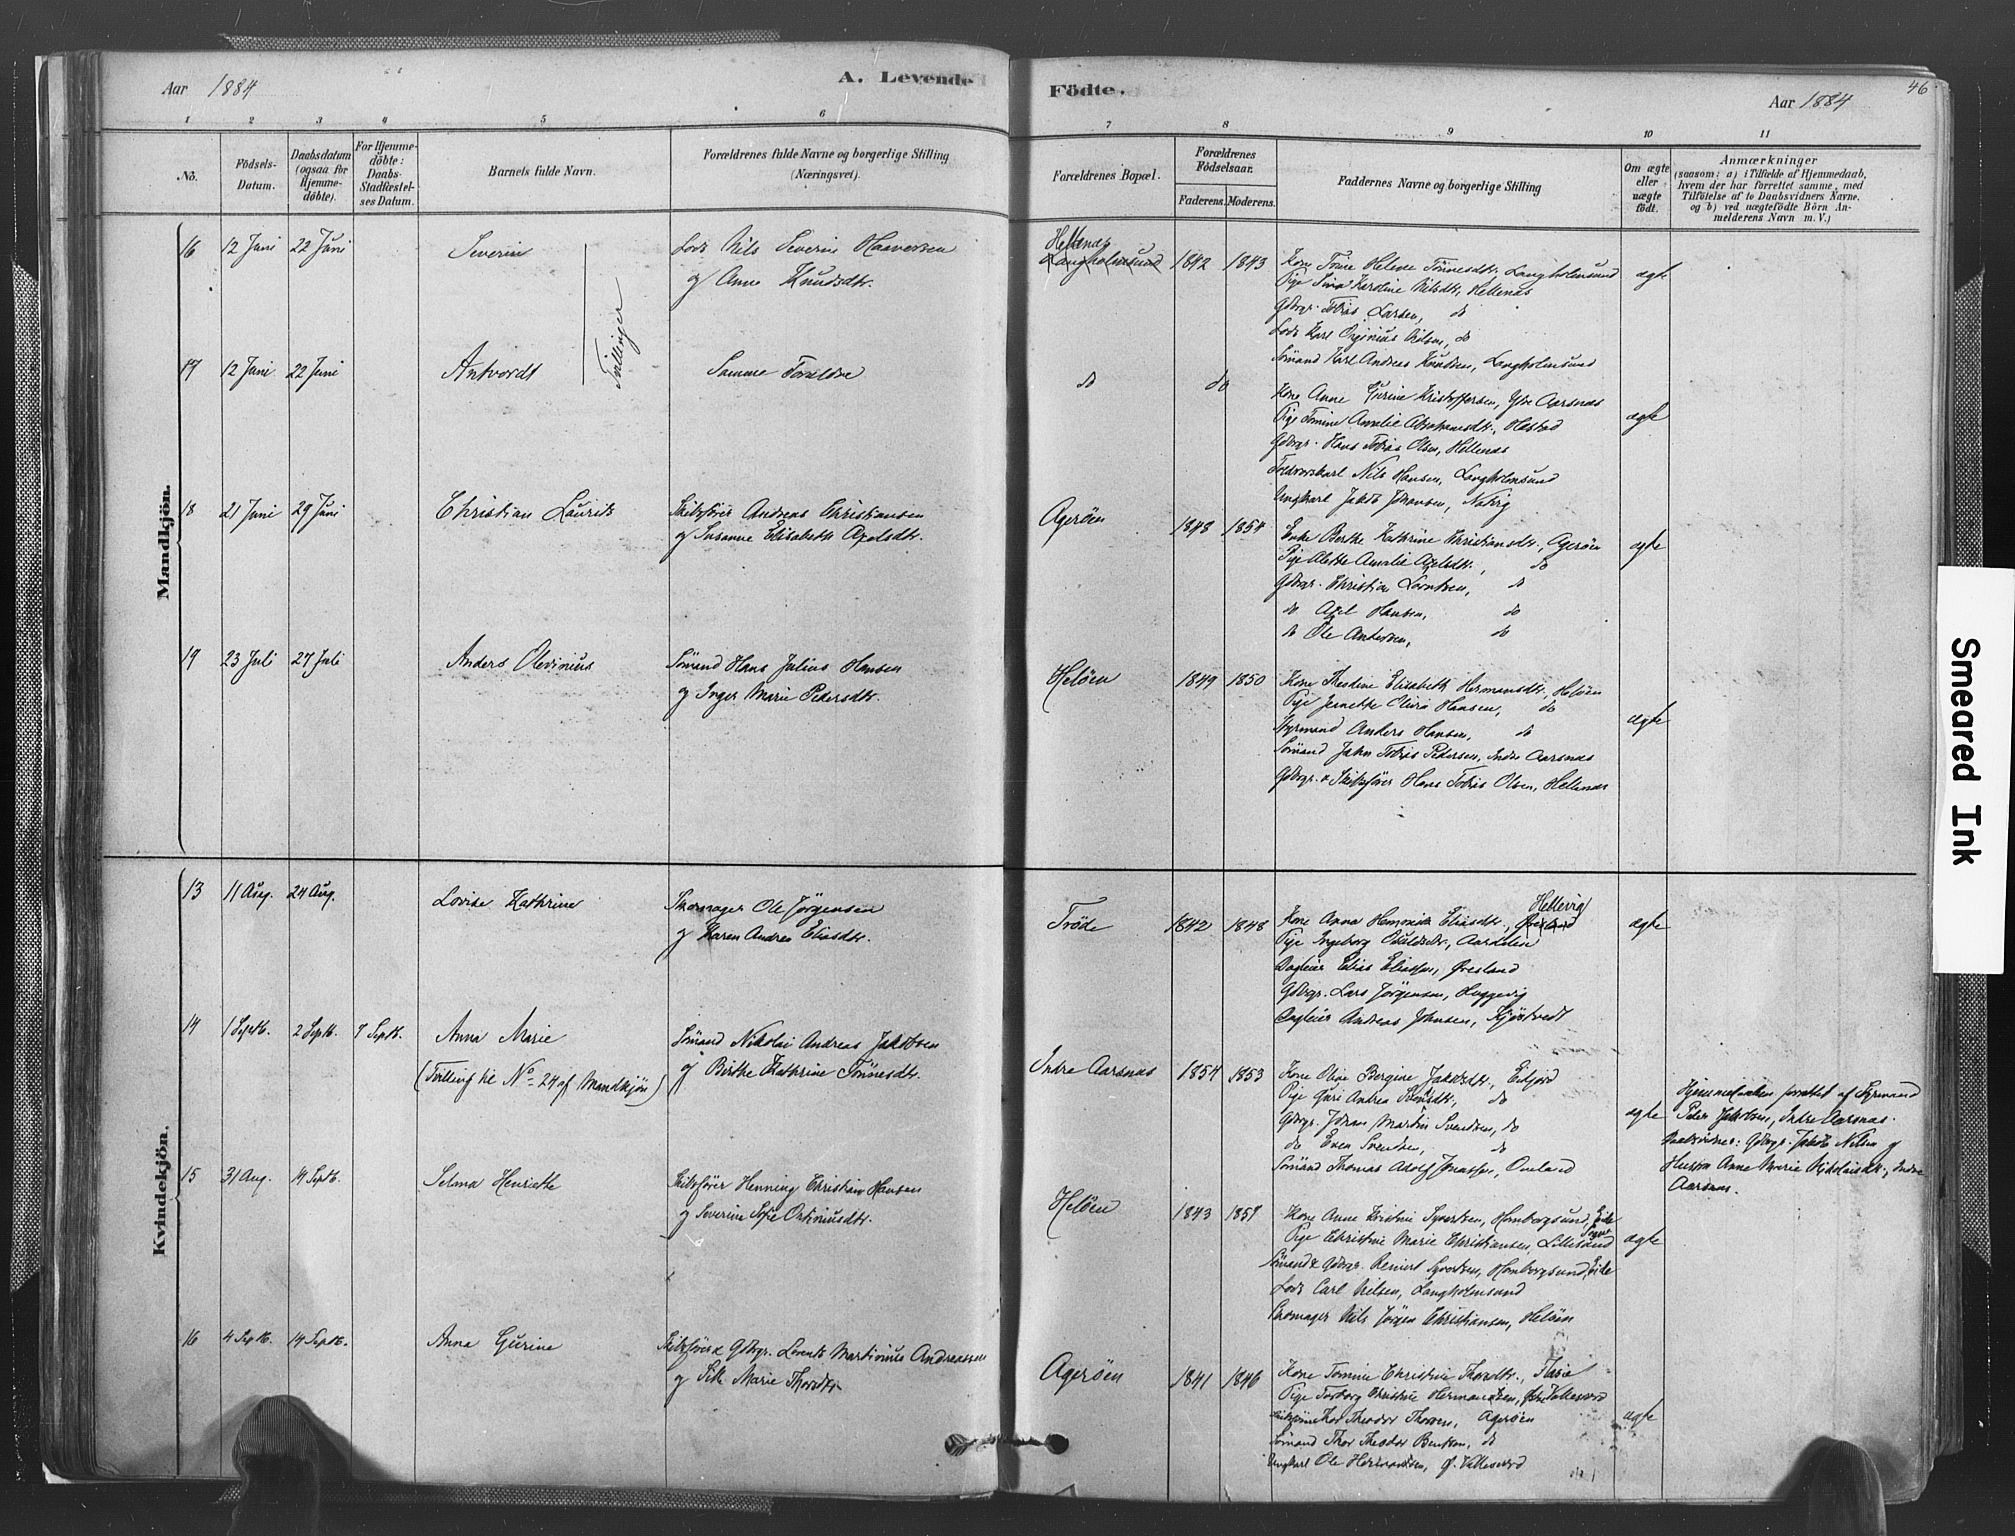 Aar 1884
A. Levende
1 2 3 4 5 6
No.
Födsels-Datum.
Daabsdatum (ogsaa for Hjemme-döbte).
For Hjemme-döbte: Daabs-Stadfæstel-ses Datum.
Barnets fulde Navn.
Forældrenes fulde Navne og borgerlige Stilling (Næringsvei).
Mandkjön.
16 12 Juni 22 Juni Severin Lods Nils Severin Haaversen
og Anne Knudsdtr.
Tvillinger
17 12 Juni 22 Juni Antvordt Samme Forældre
18 21 Juni 29 Juni Christian Laurits Skibsfører Andreas Christiansen
og Susanne Elisabeth Axelsdtr.
19 23 Juli 27 Juli Anders Olevinius Sömand Hans Julius Hansen
og Inger Marie Pedersdtr.
Kvindekjön.
13 11 Aug. 24 Aug. Lovise Kathrine Skomager Ole Jörgensen
og Karen Andrea Eliasdtr.
14 1 Septb. 2 Septb. 7 Septb. Anna Marie Sömand Nikolai Andreas Jakobsen
(Tvilling til No 24 af Mandkjön) og Birthe Kathrine Tönnesdtr.
15 31 Aug. 14 Septb. Selma Henriette Skibsfører Henning Christian Hansen
og Severine Sofie
16 4 Septb. 14 Septb. Anna Gurine Skibsfører & Gdbrgr. Lorents Martinius Andreassen
og Marie Thorsdtr.
Födte.
Aar 1884
46
7 8 9 10 11
Forældrenes Bopæl.
Forældrenes Födselsaar.
Faderens. Moderens.
Faddernes Navne og borgerlige Stilling
Om ægte eller uægte födt.
Anmærkninger
(saasom: a) i Tilfælde af Hjemmedaab,
hvem der har forrettet samme, med
Tilföielse af to Daabsvidners Navne,
og b) ved uægtefödte Börn An-
melderens Navn m. V.)
Hellenæs
Langholmsund 1842 1843 Kone Tomine Helene Tönnesdtr. Langholmsund ægte
Pige Sina Karoline Nilsdtr. Hellenæs
Gdbrgr. Tobias Larsen, do
Lods Karl Nilsen, do
Sömand Karl Andreas Knudsen, Langholmsund
do do Kone Anne Gurine Kristoffersen, Ytre Aarsnæs ægte
Pige Tomine Amalie Abrahamsdtr., Hæstad
Gdbrgr. Hans Tobias Olsen, Hellenæs
Nils Hansen, Langholmsund
Ungkarl Jakob Johansen,
Agerøen 1848 1854 Enke Berthe Kathrine Christiansdtr., Agerøen ægte
Pige Alette Amalie Axelsdtr., do
Gdbrgr. Christian Lorntsen, do
do Axel Hansen, do
do Ole Andersen, do
Heløen 1849 1850 Kone Elisabeth Hermansdtr., Heløen ægte
Pige Jernette Oliva Hansen, do
Styrmand Anders Hansen, do
Sömand John Tobias Pedersen, Indre Aarsnæs
Gdbrgr. & Skibsfører Hans Tobias Olsen, Hellenæs
Trøde 1842 1848 Kone Anna Eliasdtr., Hellevig ægte
Pige Ingeborg
Daglejer Elias Eliassen, Øresland
Gdbrgr. Lars Jörgensen, Huggevig
Daglejer Andreas Johnsen,
Indre Aarsnæs 1854 1853 Kone Olise Bergine Jakobsdtr., Eidjord ægte
Pige Guri Andrea do
Gdbrgr. Johan Martin Svendsen, do
do Even Svendsen, do
Sömand Thomas Adolf Jonassen,
Hjemmedaaben forrettet af Styrmand
Peter Jakobsen, Indre Aarsnæs.
Daabsvidner: Gdbrgr. Jakob Nilsen og
Hustru Anne Marie Nikolaisdtr., Indre
Aarsnæs.
Heløen 1843 1857 Kone Anne Kristine Syvertsen, Homborgsund, Eide Sogn ægte
Pige Christine Marie Christiansen, Lillesand
Sömand & Gdbrgr. Reinert Syvertsen, Homborgsund, Eide
Lods Carl Nilsen, Langholmsund
Skomager Nils Jörgen Christiansen, Heløen
Agerøen 1841 1846 Kone Tomine Christine Thorsdtr., ægte
Pige Torborg Christine Hermandsen, Vallesværd
Thor Theodor Thorsen, Agerøen
Sömand Thor Theodor Bentsen, do
Ungkarl Ole Hermandsen, Ø. Vallesværd
Smeared Ink